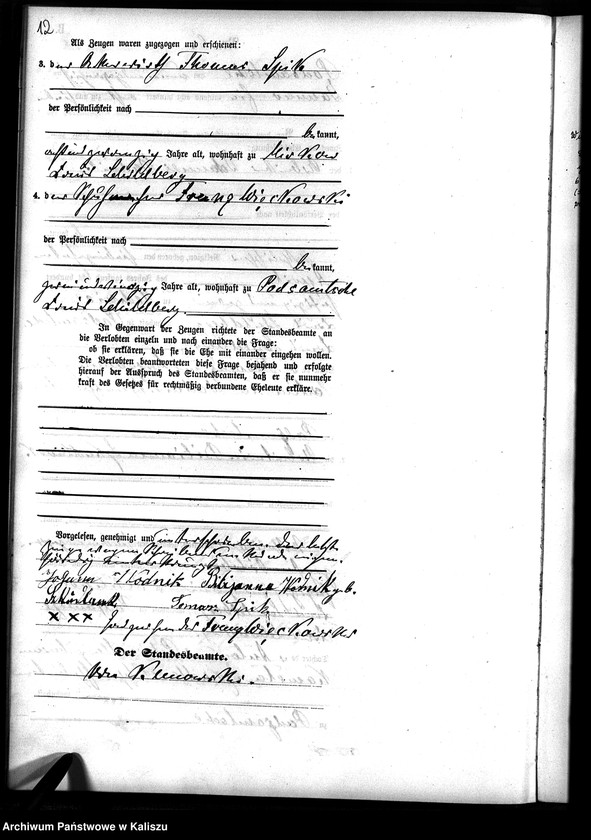 12
Als Zeugen waren zugezogen und erschienen:
3. der Ackerwirth Thomas Spika
der Persönlichkeit nach
be kannt,
achtundzwanzig Jahre alt, wohnhaft zu
Kreis Schildberg
4. der Schuhmacher Franz Więckowski
der Persönlichkeit nach
be kannt,
Jahre alt, wohnhaft zu Podsamtsche
Kreis Schildberg.
In Gegenwart der Zeugen richtete der Standesbeamte an
die Verlobten einzeln und nach einander die Frage:
ob sie erklären, daß sie die Ehe mit einander eingehen wollen.
Die Verlobten beantworteten diese Frage bejahend und erfolgte
hierauf der Ausspruch des Standesbeamten, daß er sie nunmehr
kraft des Gesetzes für rechtmäßig verbundene Eheleute erkläre.
Vorgelesen, genehmigt und unterschrieben. Der letzte
Zeuge wegen
Johann Wodnik Wodnik geb.
Tomasz Spika
xxx Handzeichen des Franz Więckowski
Der Standesbeamte.
Archiwum Państwowe w Kaliszu